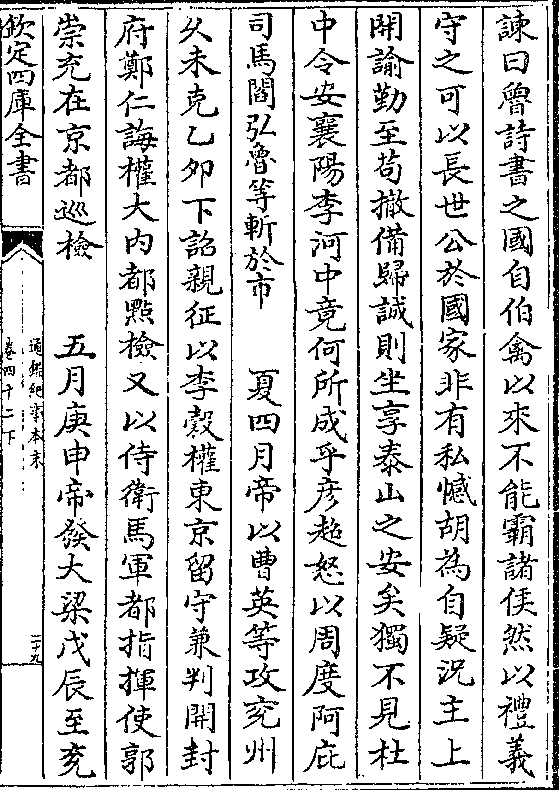 諫曰魯詩書之國自伯禽以來不能霸諸侯然以禮義
守之可以長世公於國家非有私憾胡為自疑況主上
開諭勤至苟撤備歸誠則坐享泰山之安矣獨不見杜
中令安襄陽李河中竟何所成乎彦超怒以周度阿庇
司馬閻弘魯等斬於市　夏四月帝以曹英等攻兖州
乆未克乙夘下詔親征以李糓權東京留守兼判開封
府鄭仁誨權大内都㸃檢又以侍衛馬軍都指揮使郭
崇充在京都巡檢　五月庚申帝發大梁戊辰至兖
欽定四庫全書
通鑑紀事本末
卷四十二下
二十九